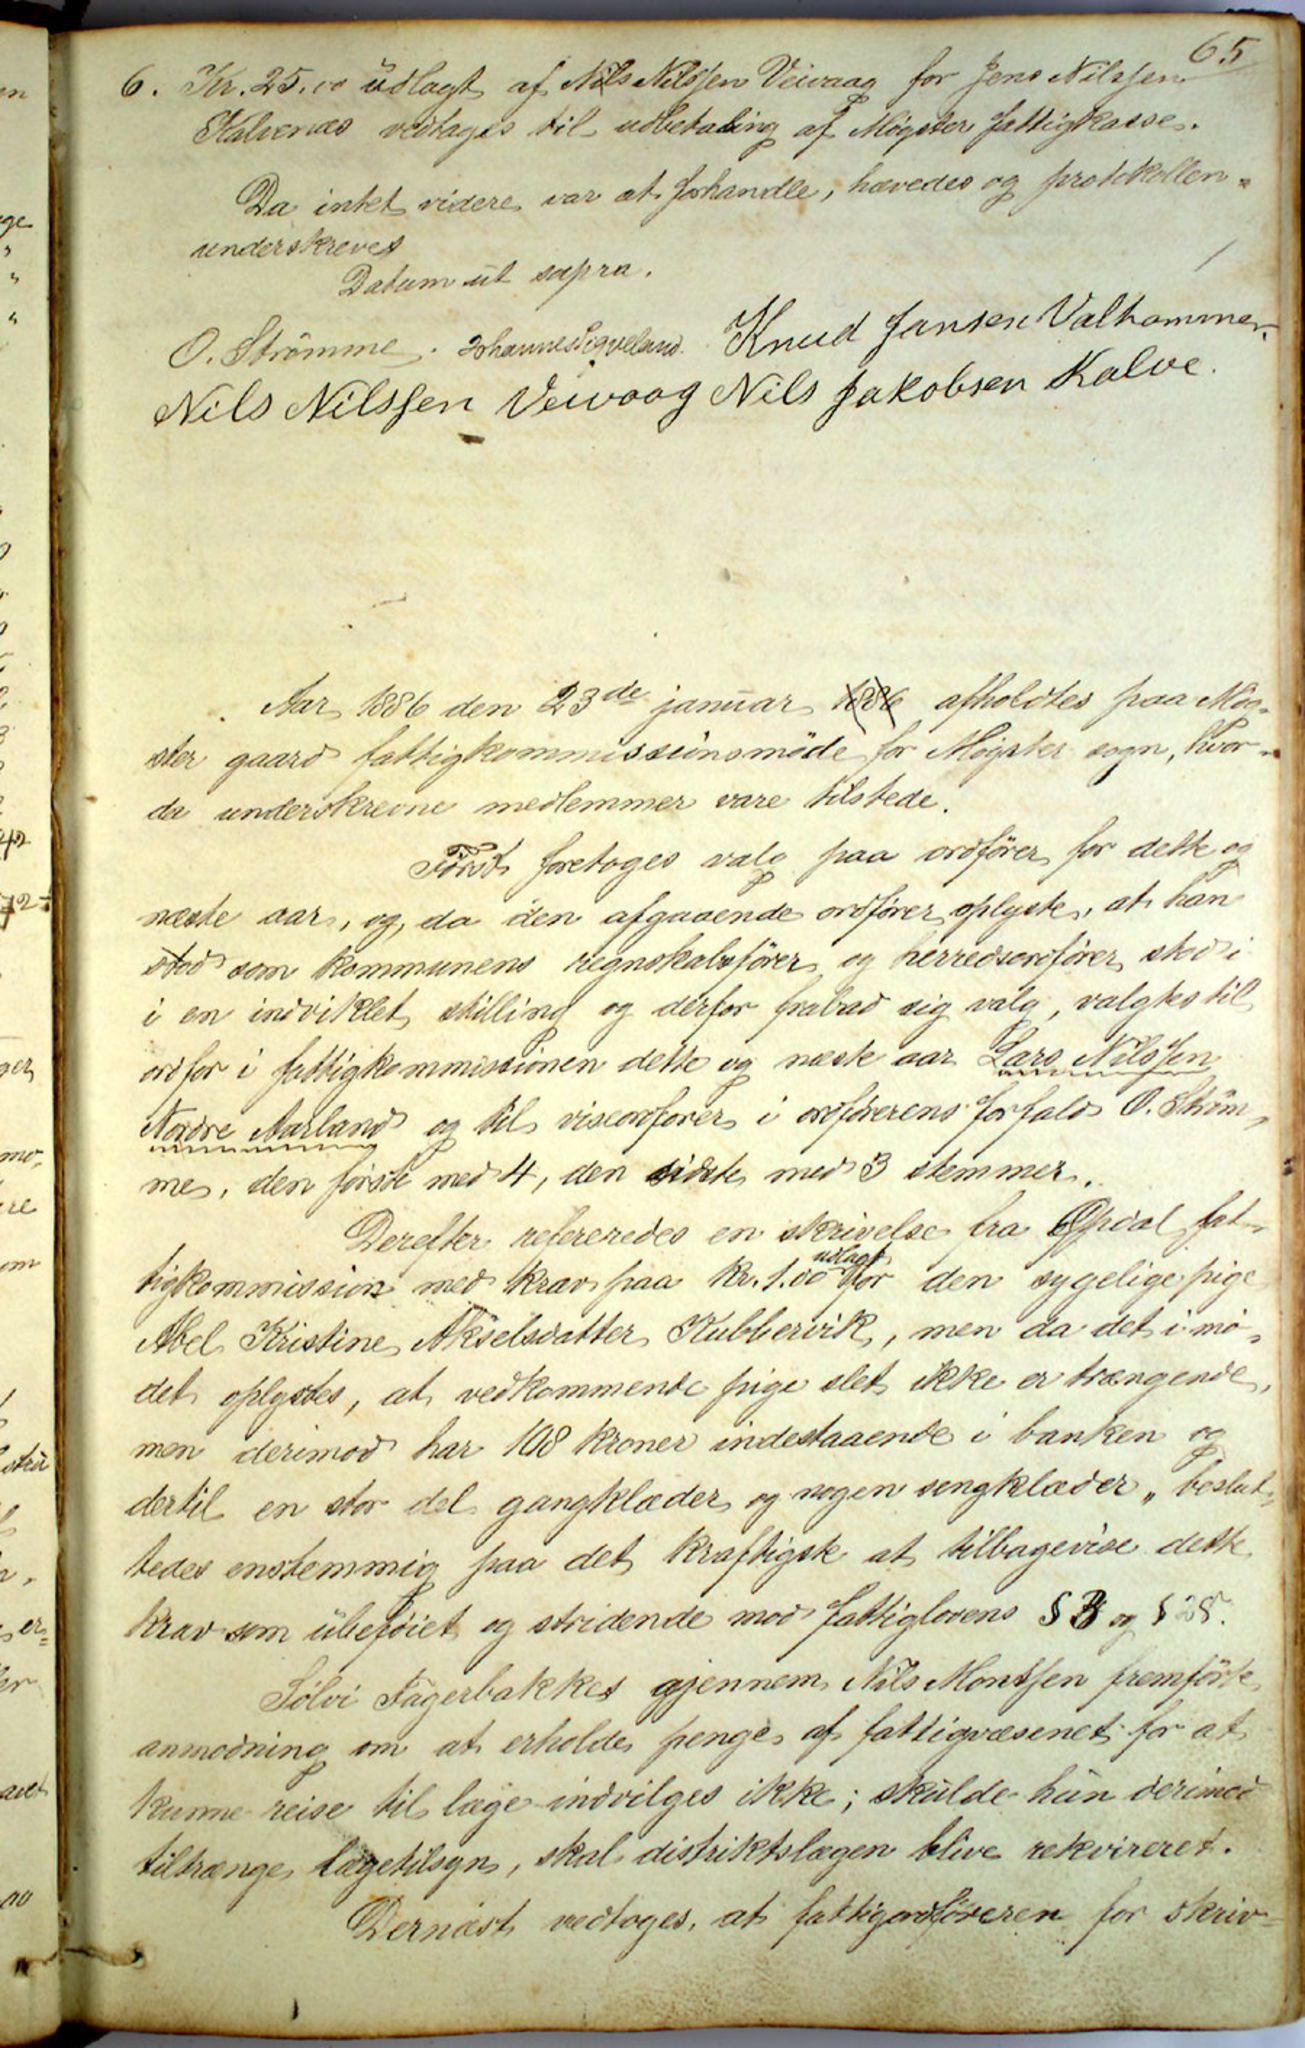 65
6. Kr. 25.00 udlagt af Nils Nilssen Veivaag for Jens Nilssen
Kalvenæs vedtages til udbetaling af Møgster fattigkasse.
Da intet videre var at forhandle, hævedes og protokollen
underskreves
Datum ut supra.
O. Strömme. Johannes Sigveland. Knud Jansen Valhammer.
Nils Nilssen Veivaag Nils Jakobsen Kalve.
Aar 1886 den 23de januar 1886 afholdtes paa Møg-
ster gaard fattigkommissionsmöde for Møgster sogn, hvor-
da underskrevne medlemmer vare tilstede.
Först foretoges valg paa ordförer for dette og
næste aar, og, da den afgaaende ordförer oplyste, at han
stod som kommunens regnskabsförer og herredsordförer stod i
i en indviklet stilling og derfor frabad sig valg, valgtes til
ordfor i fattigkommissionen dette og næste aar Lars Nilssen
Nordre Aarland og til viseordforer i ordförerens forfald O. Ström-
me, den förste med 4, den sidste med 3 stemmer.
Derefter refereredes en skrivelse fra Opdal fat-
tigkommission med krav paa kr. 1.00 udlagt for den sygelige pige
Abel Kristine Akselsdatter Kubbervik, men da det i mö-
det oplystes, at vedkommende pige slet ikke er trængende,
men derimod har 108 kroner indestaaende i banken og
dertil en stor del gangklæder og nogen sengklæder, beslut-
tedes enstemmig paa det kraftigste at tilbagevise dette
krav som ubeföiet og stridende mod fattiglovens § 3 og § 28.
Sölvi Fagerbakkes gjennem Nils Montsen fremförte
anmodning om at erholde penge af fattigvæsenet for at
kunne reise til læge indvilges ikke; skulde hun derimod
tiltrænge lægetilsyn, skal distriktslægen blive rekvireret.
Dernæst vedtoges, at fattigordföreren for skriv-